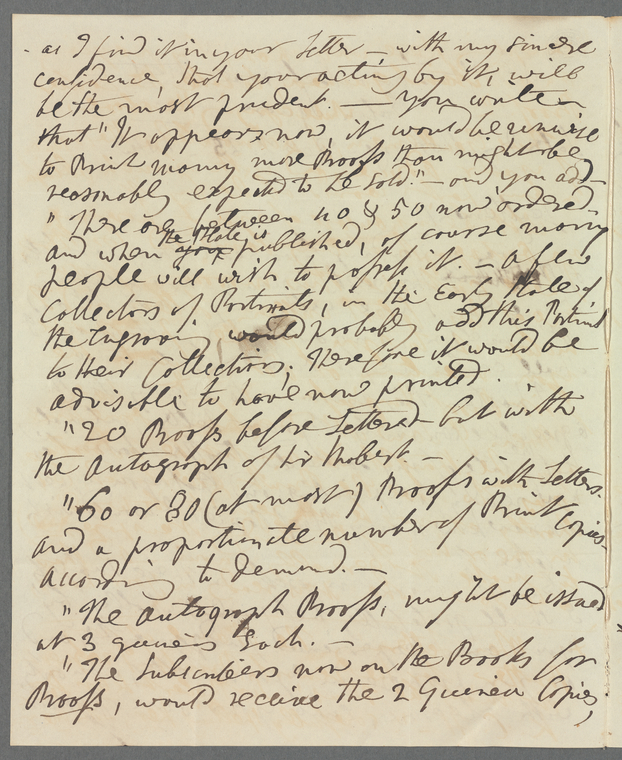 as I find it in your Letter — with my sincere
confidence, that your acting by it, will
be the most prudent. — You write —
that "It appears now, it would be unwise
to Print many more Proofs than might be
reasonably expected to be sold." — and you add —
"There are between 40 & 50 now ordered —
and when the Plate is published, of course many
people will wish to possess it — a few
Collectors of Portraits, in the Early State of
the Engraving would probably add this Portrait
to their Collections; Therefore it would be
advisible to have now printed.
"20 Proofs before Lettered — but with
the Autograph of Sir Robert —
"60 or 80 (at most) Proofs with Letters —
and a proportionate number of Print Copies —
according to demand. —
"The Autograph Proofs, might be issued
at 3 guineas Each. —
"The Subscribers now on the Books for
Proofs, would receive the 2 Guinea Copies,